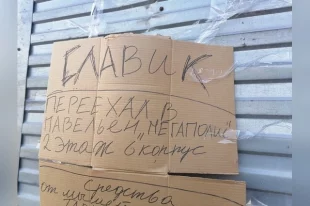 ЕЛАВИК
ПЕРЕЕХАЛ В
ПАВЕЛЬЕН „МЕГАПОЛИС"
2 ЭТАЖ 6 корпус
средства
от мышей